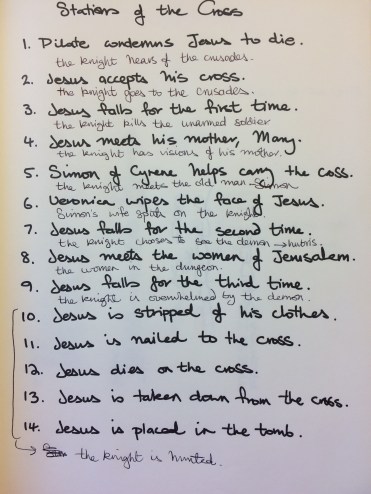 Stations of the Cross
1. Pilate condemns Jesus to die.
the knight hears of the crusades.
2. Jesus accepts his cross.
the knight goes to the crusades.
3. Jesus falls for the first time.
the knight kills the unarmed soldier
4. Jesus meets his mother, Mary.
the knight has visions of his mother.
5. Simon of Cyrene helps carry the coss.
the knight meets the old man
6. Veronica wipes the face of Jesus.
Simon's wife spits on the knight.
7. Jesus falls for the second time.
the knight chooses to see the demon → hubris.
8. Jesus meets the women of Jerusalem.
the women in the dungeon.
9. Jesus falls for the third time.
the knight is overwhelmed by the demon.
10. Jesus is stripped of his clothes.
11. Jesus is nailed to the cross.
12. Jesus dies on the cross.
13. Jesus is taken down from the cross.
14. Jesus is placed in the tomb.
→ the knight is hunted.